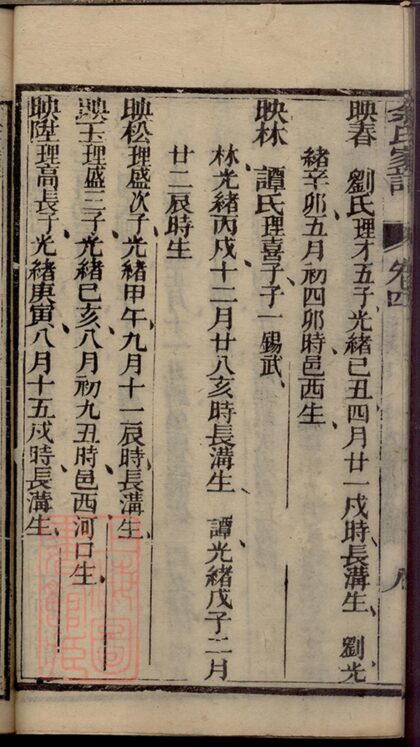 氏家譜
卷四
八
映春 劉氏理才五子光緒己丑四月廿一戌時長溝生 劉光
緒辛卯五月初四卯時邑西生
映林 譚氏理喜子子一錫武
林光緒丙戌十二月廿八亥時長溝生 譚光緒戊子二月
廿二辰時生
映松理盛次子光緒甲午九月十一辰時長溝生
映玉理盛三子光緒己亥八月初九丑時邑西河口生
映陞理高長子光緒庚寅八月十五戌時長溝生